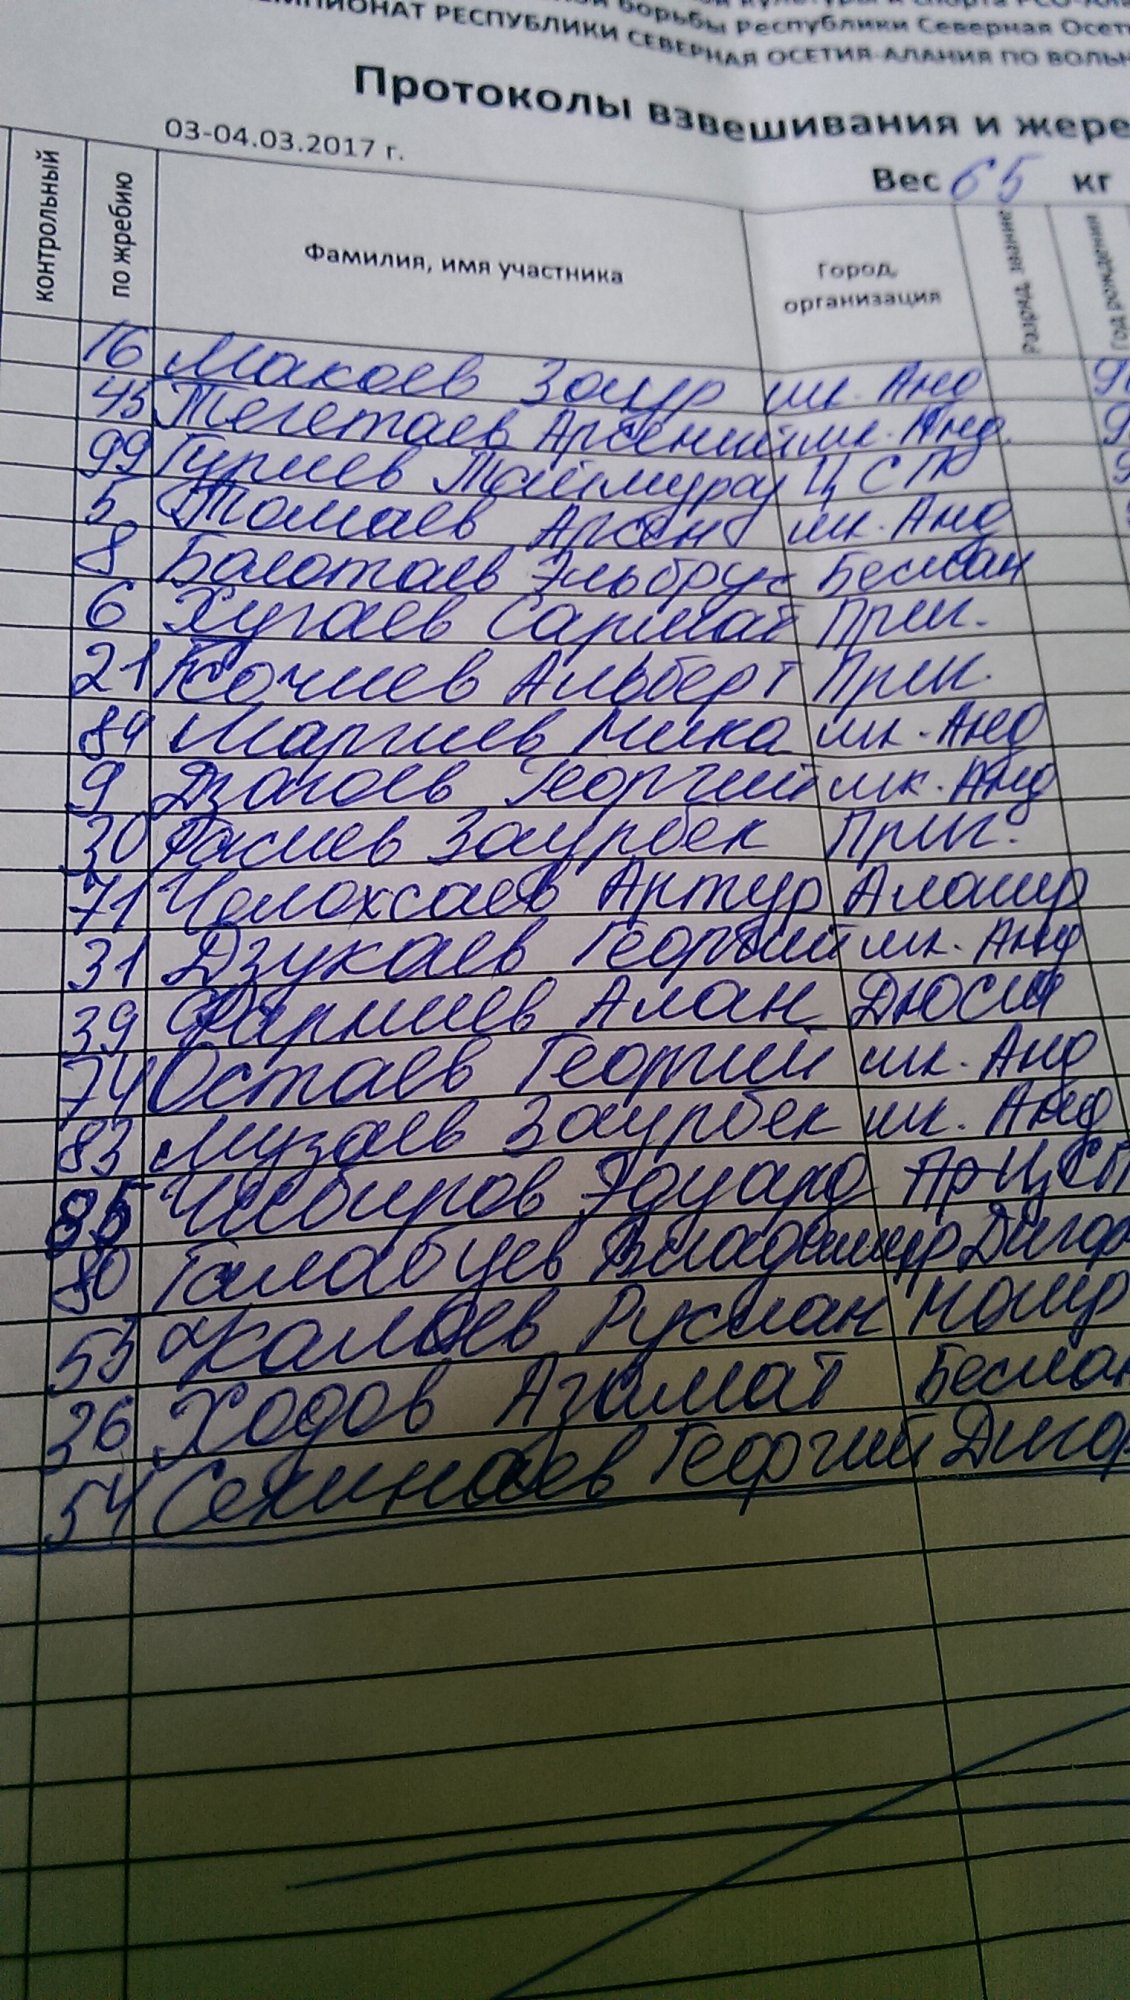 борьбы Республики Северная Осет
ЕМПИОНАТ РЕСПУБЛИКИ СЕВЕРНАЯ ОСЕТИЯ-АЛАНИЯ ПО ВОЛЬН
Протоколы взвешивания и жере
03-04.03.2017 г.
Вес 65 кг
контрольный по жребию Фамилия, имя участника Город, организация Разряд, звание Год рождения
16 Макоев Заур шк. Анд
45 Тегетаев Арсений шк. Анд.
99 Гуриев Таймураз ЦСП
5 Томаев Арсен шк. Анд
8 Болотаев Эльбрус Беслан
6 Хугаев Сармат Приг.
21 Кочиев Альберт Приг.
84 Маргиев Мика шк. Анд
9 Дзагоев Георгий шк. Анд
30 Гасиев Заурбек Приг.
71 Челохсаев Артур Алагир
31 Дзукаев Георгий шк. Анд
39 Фарниев Алан ДЮСШ
74 Остаев Георгий шк. Анд
83 Музаев Заурбек шк. Анд
85 Чибиров Эдуард ЦСП
80 Галабуев Владимир Дигор
55 Калоев Руслан
36 Ходов Азамат Беслан
54 Секинаев Георгий Дигор